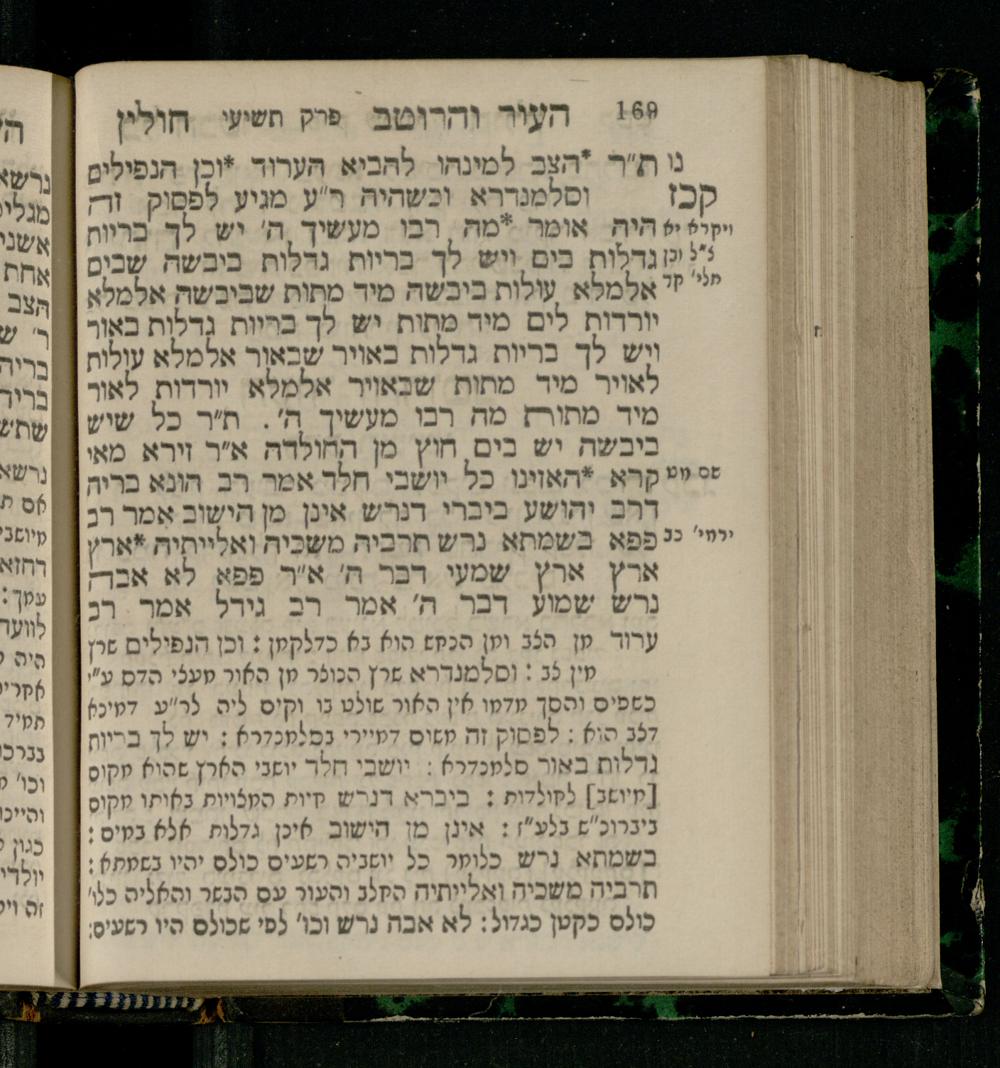 169 העור והרוטב פרק תשיעי חולין
נו ת״ר *הצב למינהו להביא הערוד *וכן הנפילים
קכז וסלמנדרא וכשהיה ר״ע מגיע לפסוק זה
ויקרא יא היה אומר *מה רבו מעשיך ה׳ יש לך בריות
צ״ל וכן גדלות בים ויש לך בריות גדלות ביבשה שבים
תלי׳ קד אלמלא עולות ביבשה מיד מתות שביבשה אלמלא
יורדות לים מיד מתות יש לך בריות גדלות באור
ויש לך בריות גדלות באויר שבאור אלמלא עולות
לאויר מיד מתות שבאויר אלמלא יורדות לאור
מיד מתות מה רבו מעשיך ה׳. ת״ר כל שיש
ביבשה יש בים חוץ מן החולדה א״ר זירא מאי
שם מט קרא *האזינו כל יושבי חלד אמר רב הונא בריה
דרב יהושע ביברי דנרש אינן מן הישוב אמר רב
ירמי׳ כב פפא בשמתא נרש תרביה משכיה ואלייתיה *ארץ
ארץ ארץ שמעי דבר ה׳ א״ר פפא לא אבה
נרש שמוע דבר ה׳ אמר רב גידל אמר רב
ערוד מן הצב ומן הנחש הוא בא כדלקמן : וכן הנפילים שרץ
מין צב : וסלמנדרא שרץ הנוצר מן האור מעצי הדס ע״י
כשפים והסך מדמו אין האור שולט בו וקים ליה לר״ע דמינא
דצב הוא : לפסוק זה משום דמיירי בסלמנדרא : יש לך בריות
גדלות באור סלמנדרא : יושבי חלד יושבי הארץ שהוא מקום
[מיושב] לחולדות : ביברא דנרש חיות המצויות באותו מקום
ביברונ״ש בלע״ז : אינן מן הישוב אינן גדלות אלא במים :
בשמתא נרש כלומר כל יושביה רשעים כולם יהיו בשמתא :
תרביה משכיה ואלייתיה החלב והעור עם הבשר והאליה כלו׳
כולם כקטן כגדול : לא אבה נרש וכו׳ לפי שכולם היו רשעים :